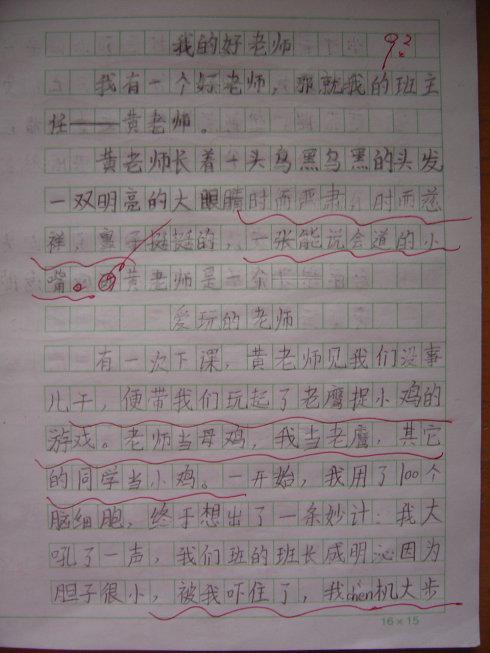 我的好老师 92
我有一个好老师，那就我的班主
任——黄老师。
黄老师长着一头乌黑乌黑的头发
一双明亮的大眼睛时而严肃，时而慈
祥，鼻子挺挺的，一张能说会道的小
嘴。黄老师是一个
爱玩的老师
有一次下课，黄老师见我们没事
儿干，便带我们玩起了老鹰捉小鸡的
游戏。老师当母鸡，我当老鹰，其它
的同学当小鸡。一开始，我用了100个
脑细胞，终于想出了一条妙计：我大
吼了一声，我们班的班长成明沁因为
胆子很小，被我吓住了，我chèn机大步
16×15